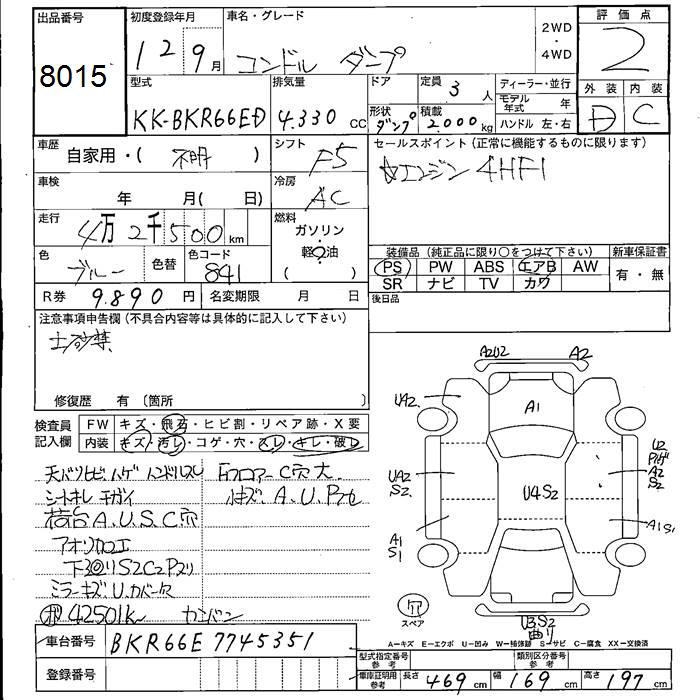 出品番号
8015
初度登録年月
12 9月
車名・グレード
コンドル ダンプ
2WD
・
4WD
評価点
2
外装 内装
D C
型式
KK-BKR66ED
排気量
4.330 cc
ドア
形状
ダンプ
定員 3 人
積載 2.000 kg
ディーラー・並行
モデル年式 年
ハンドル 左・右
車歴
自家用・( 不明 )
シフト
F5
セールスポイント(正常に機能するものに限ります)
☆エンジン 4HF1
車検
年 月( 日)
冷房
AC
走行
4万2千500km
燃料
ガソリン
・
軽油
( )
色
ブルー
色替
色コード
841
装備品(純正品に限り○をつけて下さい)
PS PW ABS エアB AW
SR ナビ TV カワ
新車保証書
有・無
R券 9.890円
名変期限 月 日
後日品
注意事項申告欄(不具合内容等は具体的に記入して下さい)
土砂禁
修復歴 有(箇所 )
検査員
記入欄
FW キズ・飛石・ヒビ割・リペア跡・X要
内装 キズ・汚レ・コゲ・穴・スレ・キレ・破レ
ハンドルスレ
シートキレ
荷台A.U.S.C穴
下回りS2C2Pスリ
ミラーキズ
42501K
カンバン
Fフロアー C穴大
A.U.P
A2U2 A2
UA2
A1
UA2
S2
U4S2
U2
A2
S2
A1
S1
A1S1
穴
スペア
U3S2
曲り
A=キズ E=エクボ U=凹み W=補修跡 S=サビ C=腐食 XX=交換済
車台番号 BKR66E 7745351
登録番号
型式指定番号
参考
類別区分番号
参考
車庫証明用
参考
長さ 469 cm 幅 169 cm 高さ 197 cm